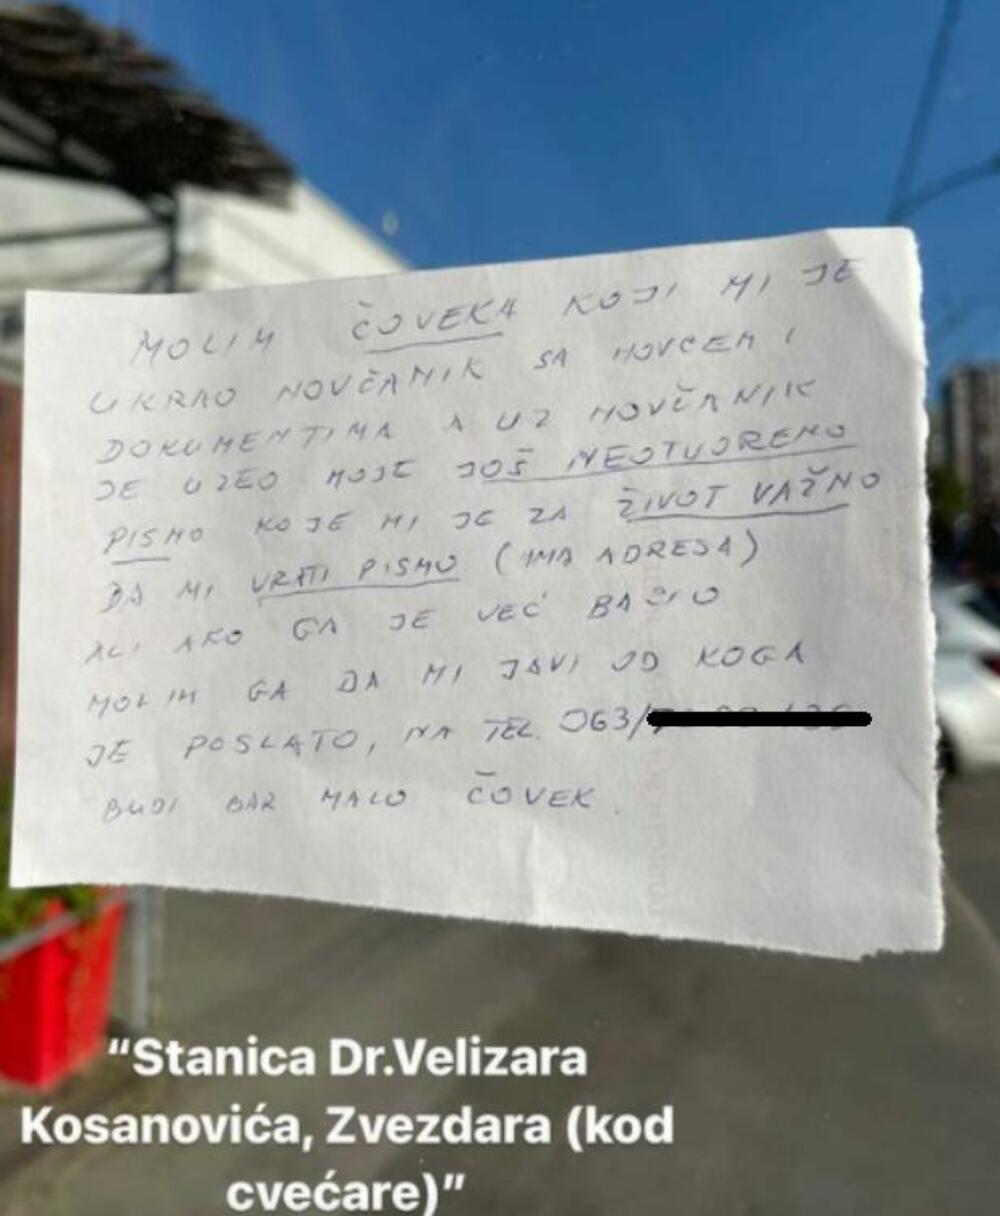 MOLIM ČOVEKA KOJI MI JE
UKRAO NOVČANIK SA NOVCEM I
DOKUMENTIMA A UZ NOVČANIK
JE UZEO MOJE JOŠ NEOTVORENO
PISMO KOJE MI JE ZA ŽIVOT VAŽNO
DA MI VRATI PISMO (IMA ADRESA)
ALI AKO GA JE VEĆ BACIO
MOLIM GA DA MI JAVI OD KOGA
JE POSLATO, NA TEL. 063/
BUDI BAR MALO ČOVEK.
“Stanica Dr.Velizara
Kosanovića, Zvezdara (kod
cvećare)”